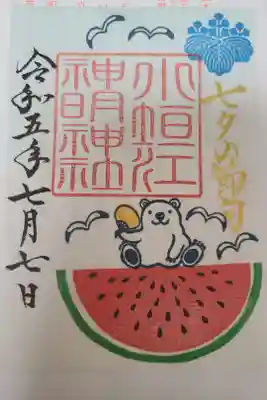 七夕の節句
小垣江
神明神社
令和五年七月七日